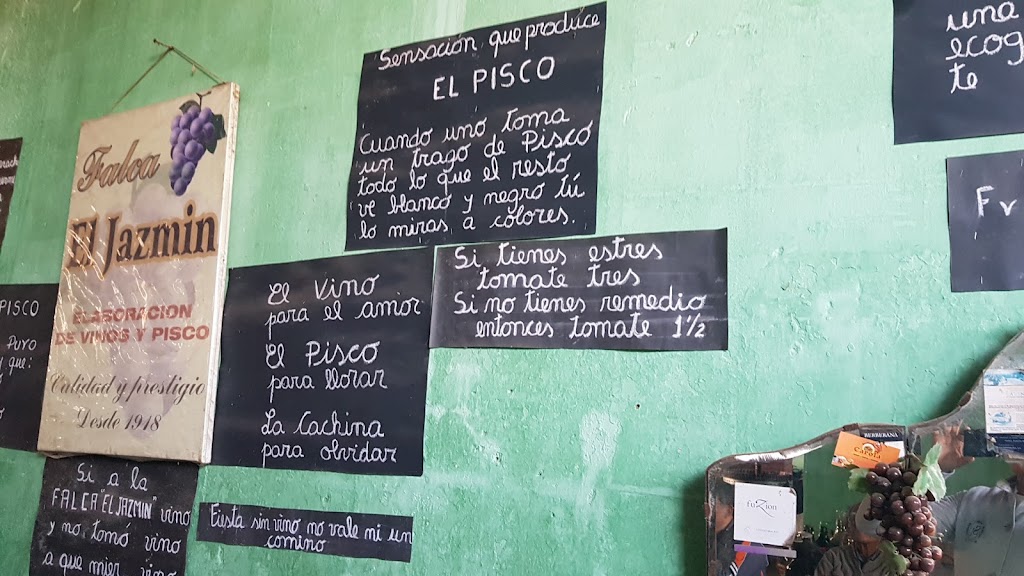 Sensación que produce
EL PISCO
Cuando uno toma
un trago de Pisco
todo lo que el resto
ve blanco y negro tú
lo miras a colores.
Falca
El Jazmin
ELABORACION
DE VINOS Y PISCO
Calidad y prestigio
Desde 1918
El Vino
para el amor
El Pisco
para llorar
La Cachina
para olvidar
Si tienes estres
tomate tres
Si no tienes remedio
entonces tomate 1½
Si a la
FALCA "EL JAZMIN" vino
y no tomó vino
a que mier vino
Fiesta sin vino no vale mi un
comino
PISCO
PURO
que:
una
ecog
te
Fr
BERBERANA
Capota
fuZion